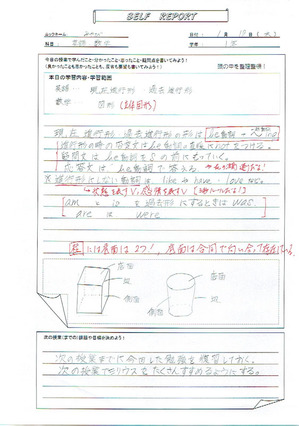 SELF REPORT
ルックネーム
日付: 1月 18日 (水)
科目: 英語 数学
学年: 1年
今日の授業で学んだこと・分かったこと・思ったこと・疑問点を書いてみよう!
頭の中を整理整頓!
本日の学習内容・学習範囲
英語… 現在進行形 過去進行形
数学… 図形(立体図形)
現在進行形、過去進行形の形は be動詞 + 〜ing
進行形の時の否定文はbe動詞の直後にnotをつける。
疑問文はbe動詞をSの前にもっていく。
応答文はbe動詞で答える。
※進行形にしない動詞は like, have, love etc.
→状態を表すV、感情を表すV
am ・ is を過去形にするときは was.
are は were
柱には底面は2つ!、底面は合同で向い合って存在している。
底面
辺
側面
底面
側面
次の授業(までの)課題や目標を決めよう!
次の授業までに今回した勉強を復習しておく。
次の授業でモリウスをたくさんすすめるようにする。